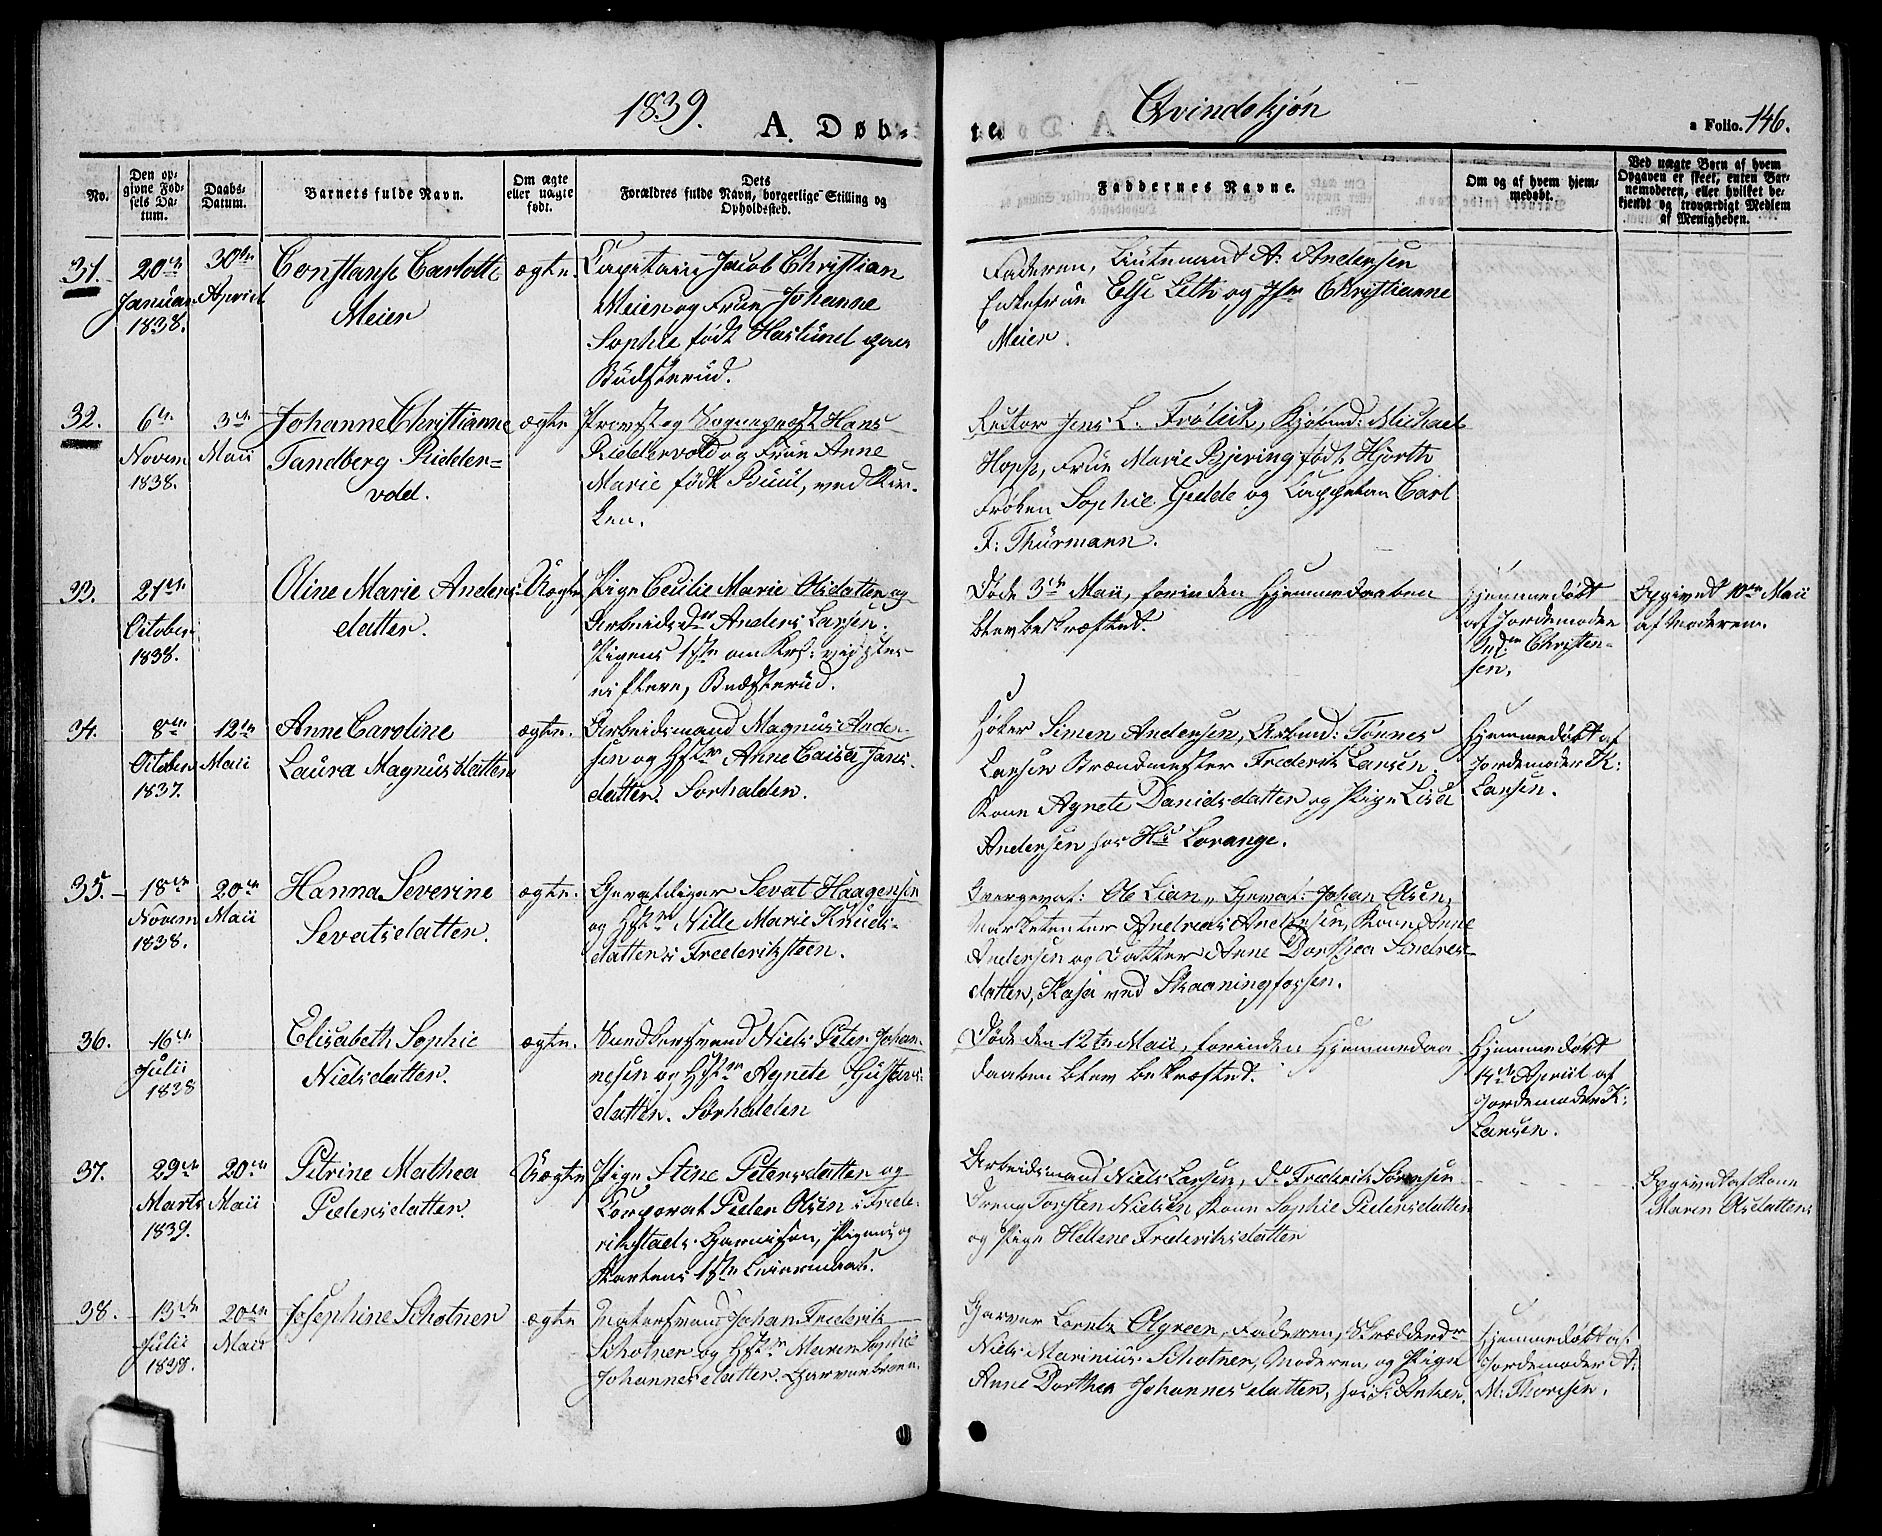 1839.
A. Døb-
te.
Qvindekjøn
a Folio. 146.
No.
Den op-
givne Fød-
sels Da-
tum.
Daabs-
Datum.
Barnets fulde Navn.
Om ægte
eller uægte
født.
Dets
Forældres fulde Navn, borgerlige Stilling og
Opholdssted.
Faddernes Navne.
Om og af hvem hjem-
medøbt.
Ved uægte Børn af hvem
Opgaven er skeet, enten Bar-
nemoderen, eller hvilket be-
kjendt og troværdigt Medlem
af Menigheden.
31.
20de
Januar
1838.
30te
April
Constanse Carlotte
Meier
ægte.
Capitain Jacob Christian
Meier og Frue Johanne
Sophie født Haslund paa
Bødsterud.
Faderen, Lieutenand A: Andersen
Enkefrue Else Leth og Jfr Christianne
Meier.
32.
6te
Novem
1838.
3de
Maii
Johanne Christianne
Tandberg Ridder=
vold.
ægte
Provst og Sognepræst Hans
Riddervold og Frue Anne
Marie født Buul, ved Kir-
ken.
Rector Jens L. Frølich, Kjøbmd: Michael
Hopp, Frue Marie Bjering født Hjorth
Frøken Sophie Gedde og Cappelan Carl
F: Thurmann.
33.
21de
October
1838.
Oline Marie Anders-
datter.
Uægte
Pige Cecilie Marie Olsdatter og
Arbeidsmd Anders Larsen.
Pigens 1ste
Bødsterud.
Døde 3de Maii, forinden Hjemmedaaben
blev bekræftet.
Hjemmedøbt
af Jordemoder
Christen-
sen.
Opgivet 10de Maii
af Moderen.
34.
8de
October
1837.
12te
Maii
Anne Caroline
Laura Magnusdatter
ægte.
Arbeidsmand Magnus Ander-
sen og Hstr Anne Caisa Jans-
datter. Sørhalden.
Høker Simen Andersen, Arbmd: Tønnes
Larsen Brandmester Frederik Larsen
Kone Agnete Danielsdatter og Pige Lisa
Andersen hos Hr Lorange.
Hjemmedøbt af
Jordemoder K:
Larsen.
35.
18de
Novem
1838.
20de
Maii
Hanna Severine
Sevatsdatter.
ægte.
Gevaldiger Sevat Haagensen
og Hstr Nille Marie Knuds-
datter i Frederiksteen.
Ole Lian, Gevat: Johan Olsen,
Marketenter Andreas Andersen, Kone Anne
Andersen og Datter Anne Dorthea Andreas-
datter, Kaja ved Skaaningfossen.
36.
16de
Julii
1838
Elisabeth Sophie
Nielsdatter.
ægte.
Niels Peter Johan-
nesen og Hstr Agnete Gustavs-
datter. Sørhalden
Døde den 12te Maii, forinden Hjemmedaa
daaben blev bekræftet.
Hjemmedøbt
14de April af
Jordemoder K:
Larsen.
37.
29de
Marts
1839.
20de
Maii
Petrine Mathea
Pedersdatter.
Uægte
Pige Stine Petersdatter og
Corporal Peder Olsen i Frede-
rikstads Garnison, Pigens og
Karlens 1ste Leiermaal.
Arbeidsmand Niels Larsen, do Frederik Sørensen
Dreng Torsten Nielsen Kone Sophie Pedersdatter
og Pige Hellene Frederiksdatter
Opgivet af Kone
Maren Olsdatter
38.
13de
Julii
1838.
20de
Maii
Josephine Schotner
ægte
Matersvend Johan Frederik
Schotner og Hstr Maren Sophie
Johannesdatter. Garverbroen.
Garver Lorentz Olgreen, Faderen, Skræddermr
Niels Marinius Schotner, Moderen, og Pige
Anne Dorthea Johannesdatter, hos S: Anker.
Hjemmedøbt af
Jordemoder A:
M: Thoresen.